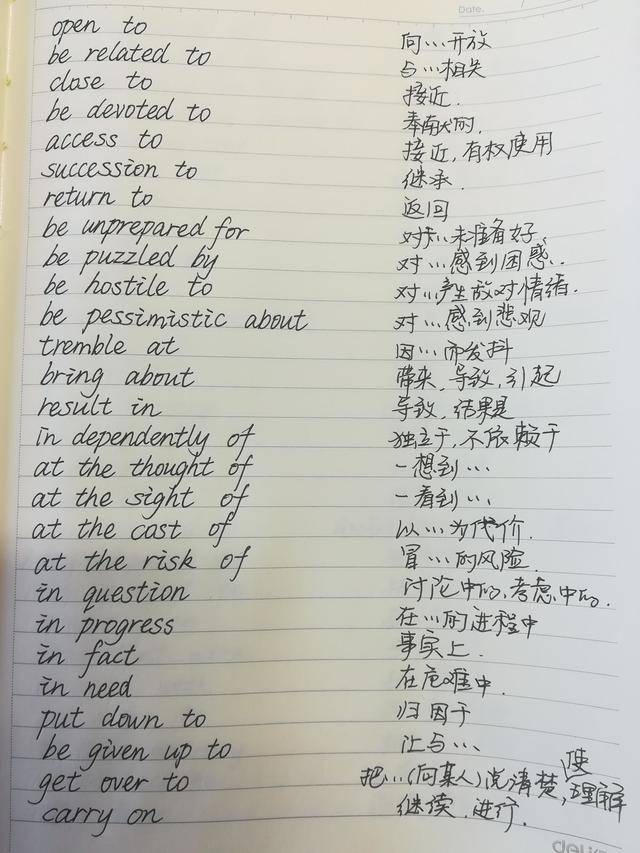 Date.
open to 向…开放
be related to 与…相关
close to 接近.
be devoted to 奉献的.
access to 接近, 有权使用
succession to 继承.
return to 返回
be unprepared for 对…未准备好.
be puzzled by 对…感到困惑..
be hostile to 对…产生敌对情绪.
be pessimistic about 对…感到悲观
tremble at 因…而发抖
bring about 带来, 导致, 引起
result in 导致, 结果是
in dependently of 独立于, 不依赖于
at the thought of 一想到…
at the sight of 一看到…
at the cast of 以…为代价.
at the risk of 冒…的风险.
in question 讨论中的, 考虑中的.
in progress 在…的进程中
in fact 事实上.
in need 在危难中.
put down to 归因于
be given up to 让与…
get over to 把…(向某人)说清楚, 使理解
carry on 继续, 进行.
deli